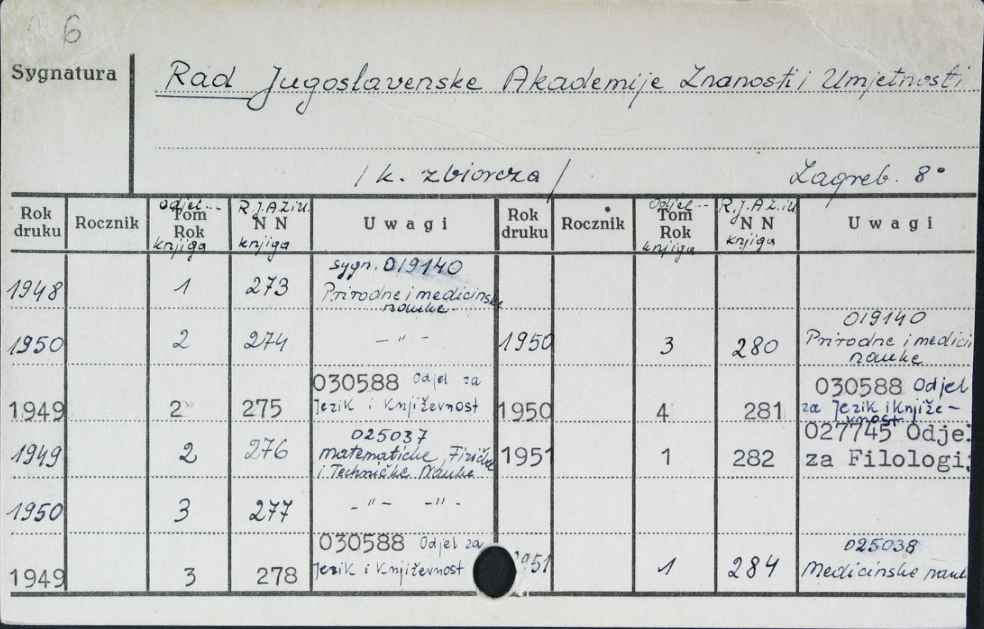 6
Sygnatura
Rad Jugoslavenske Akademije Znanosti i Umjetnosti
/ k. zbiorcza /
Zagreb. 8°
Rok druku Rocznik Odjel Tom Rok knjiga R.J.A.Z.iU. N N knjiga Uwagi Rok druku Rocznik Odjel Tom Rok knjiga R.J.A.Z.iU. N N knjiga Uwagi
1948 1 273 sygn. 019140
Prirodne i medicinske
nauke
1950 2 274 - " -
1949 2 275 030588 Odjel za
Jezik i Književnost
1949 2 276 025037
matematičke, Fizičke
i Tehničke Nauke
1950 3 277 - " - - " -
1949 3 278 030588 Odjel za
Jezik i Književnost
1950 3 280 019140
Prirodne i medici
nauke
1950 4 281 030588 Odjel
za Jezik i Knjiže-
vnost
1951 1 282 027745 Odjel
za Filologij
1951 1 284 025038
Medicinske nauk